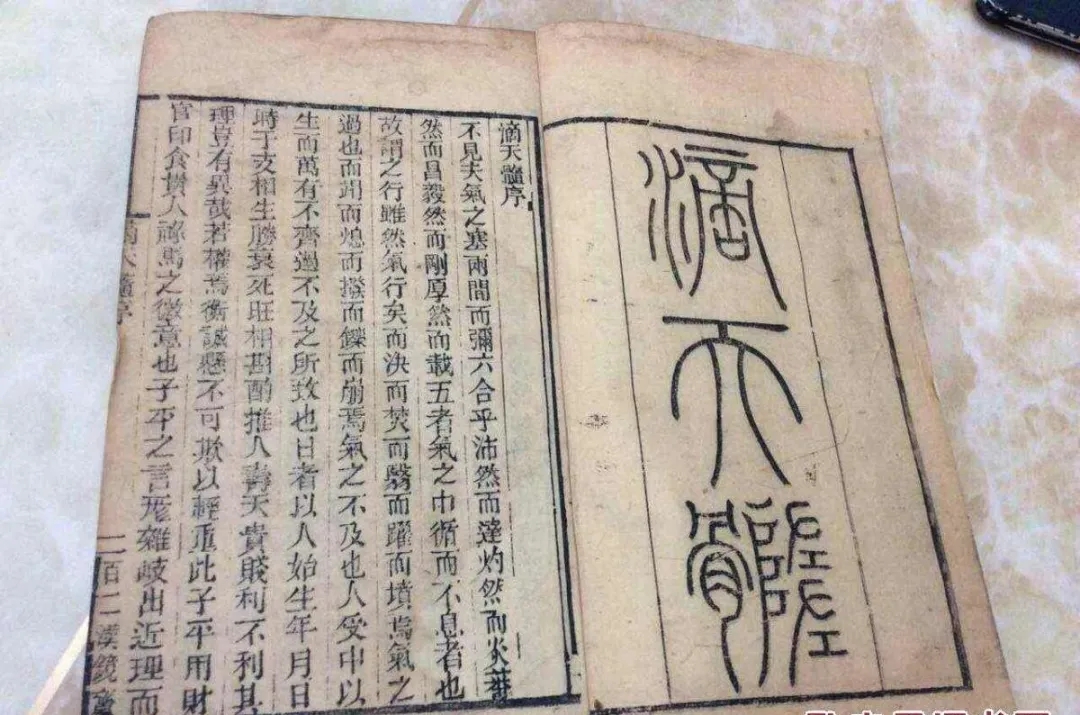 滴天髓
滴天髓序
不見夫氣之塞兩間而彌六合乎沛然而達灼然而炎蕃
然而昌毅然而剛厚然而載五者氣之巾循而不息者也
故謂之行雖然氣行矣而決而焚而翳而躍而墳焉氣之
過也而涸而熄而撥而鑠而崩焉氣之不及也人受中以
生而萬有不齊過不及之所致也日者以人始生年月日
時干支相生勝衰死旺相斟酌推人壽夭貴賤利不利其
理豈有異哉若權焉衡誠懸不可欺以輕重此子平用財
官印食貴人祿馬之微意也子平之言厖雜歧出近理而
滴天髓序
一百二漢鏡齋